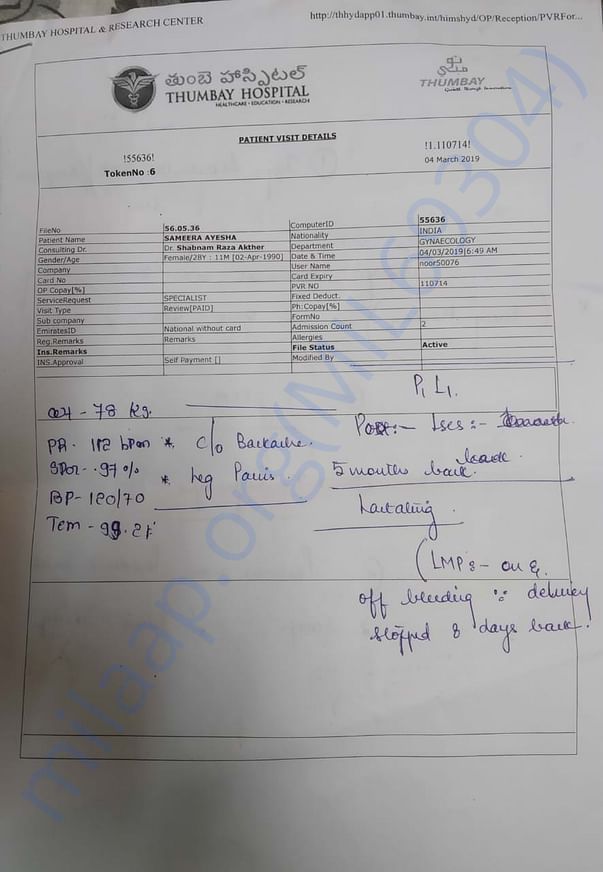 THUMBAY HOSPITAL & RESEARCH CENTER
http://thhydapp01.thumbay.int/himshyd/OP/Reception/PVRFor...
తుంబె హాస్పిటల్
THUMBAY HOSPITAL
HEALTHCARE - EDUCATION - RESEARCH
THUMBAY
PATIENT VISIT DETAILS
!55636!
!1.110714!
TokenNo :6
04 March 2019
FileNo 56.05.36 ComputerID 55636
Patient Name SAMEERA AYESHA Nationality INDIA
Consulting Dr. Dr. Shabnam Raza Akther Department GYNAECOLOGY
Gender/Age Female/28Y : 11M [02-Apr-1990] Date & Time 04/03/2019|6:49 AM
Company User Name noor50076
Card No Card Expiry
OP Copay[%] PVR NO 110714
ServiceRequest SPECIALIST Fixed Deduct.
Visit Type Review[PAID] Ph:Copay[%]
Sub company FormNo
EmiratesID National without card Admission Count 2
Reg.Remarks Remarks Allergies
Ins.Remarks File Status Active
INS.Approval Self Payment [] Modified By
P1 L1
78 kg.
PR- 112 bpm * c/o Backache. Post:- Lscs:-
SPO2- 97% * leg Pains. 5 months back.
BP- 120/70
Lactating
Tem - 99.2F
(LMP's- on &
off bleeding ∵ delivery
stopped 8 days back.
milaap.org(MIL69304)